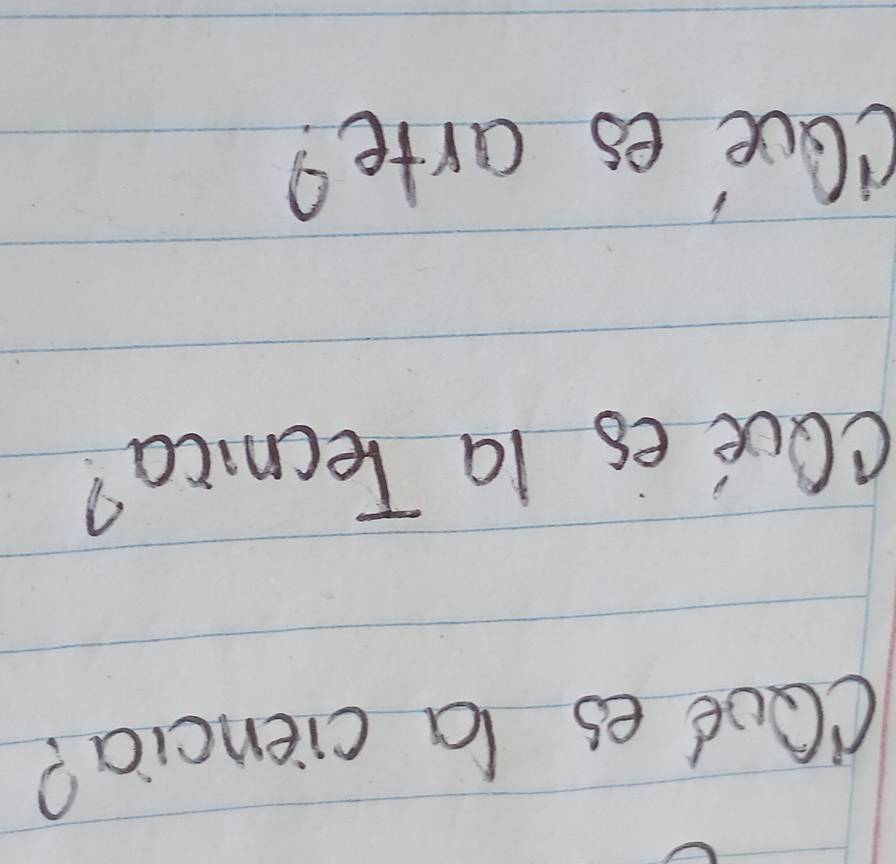 ¿Qué es la ciencia?
¿Qué es la Tecnica?
¿Qué es arte?